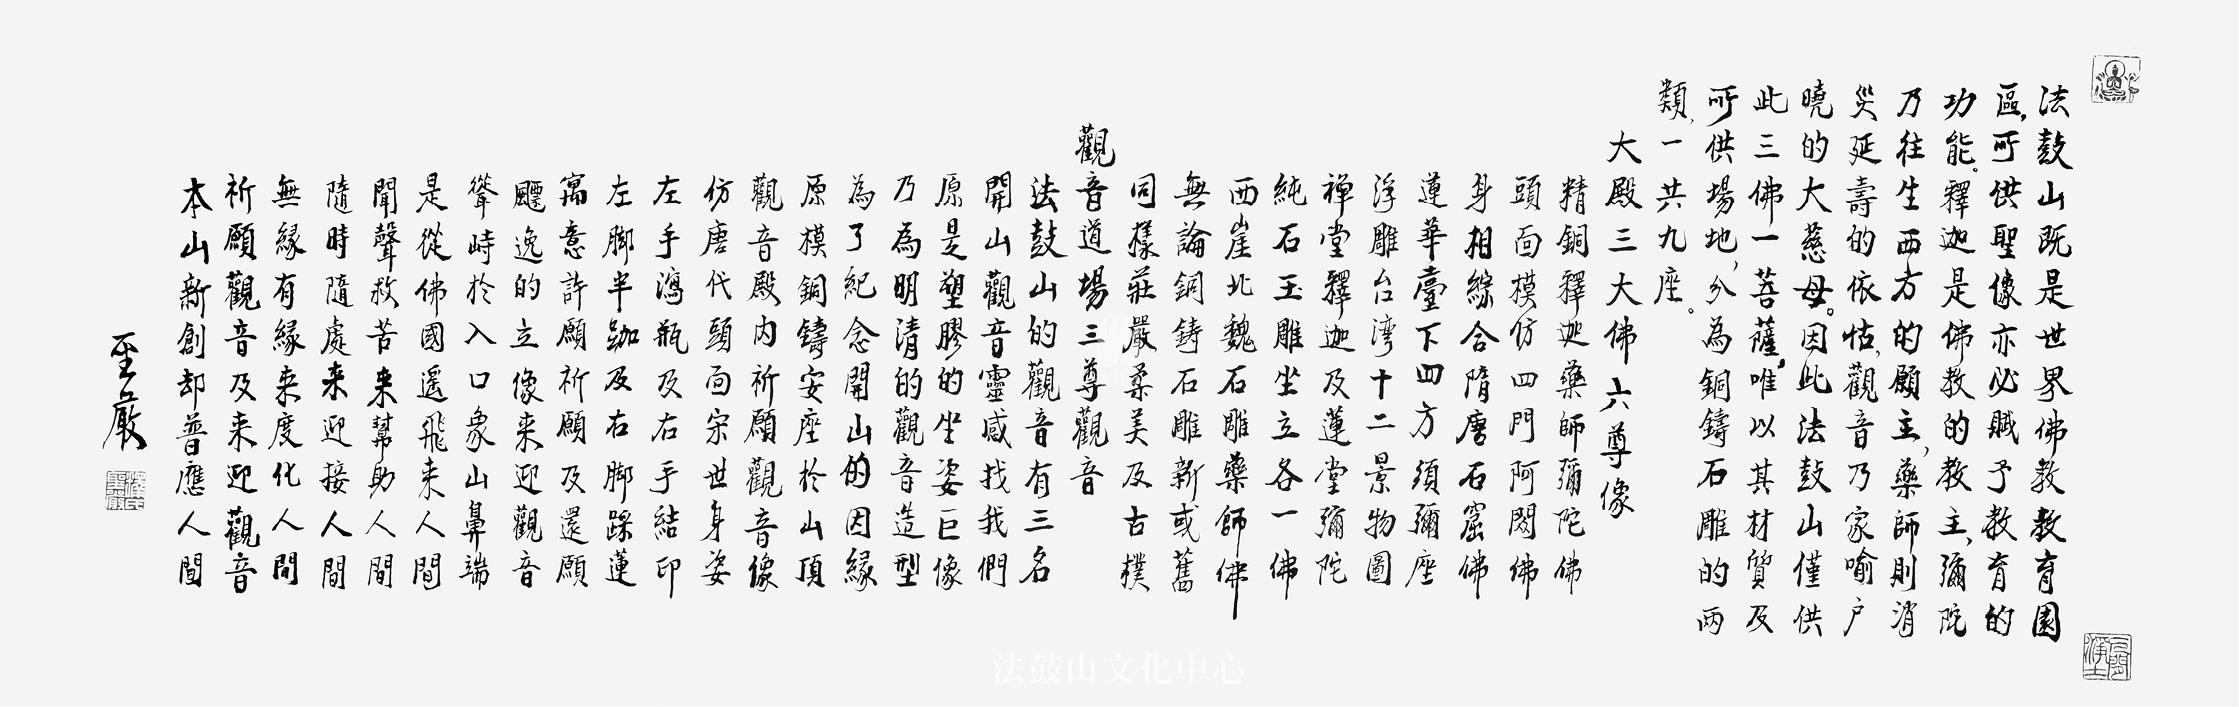 法鼓山既是世界佛教教育園
區,可供聖像亦必賦予教育的
功能。釋迦是佛教的教主,彌陀
乃往生西方的願主,藥師則消
災延壽的依怙,觀音乃家喻戶
曉的大慈母。因此法鼓山僅供
此三佛一菩薩,唯以其材質及
所供場地,分為銅鑄石雕的兩
類,一共九座。
大殿三大佛 六尊像
精銅釋迦藥師彌陀佛
頭面模仿四門阿閦佛
身相綜合隋唐石窟佛
蓮華臺下四方須彌座
浮雕台灣十二景物圖
禅堂釋迦及蓮堂彌陀
純石玉雕坐立各一佛
西崖北魏石雕藥師佛
無論銅鑄石雕新或舊
同樣莊嚴柔美及古樸
觀音道場三尊觀音
法鼓山的觀音有三名
開山觀音靈感找我們
原是塑膠的坐姿巨像
乃為明清的觀音造型
為了紀念開山的因緣
原模銅鑄安座於山頂
觀音殿內祈願觀音像
仿唐代頭面宋世身姿
左手瀉瓶及右手結印
左脚半跏及右脚踩蓮
寓意許願祈願及還願
飃逸的立像来迎觀音
聳峙於入口象山鼻端
是從佛國遥飛来人間
聞聲救苦来幫助人間
隨時隨處来迎接人間
無緣有緣来度化人間
祈願觀音及来迎觀音
本山新創却普應人間
聖嚴
法鼓山文化中心